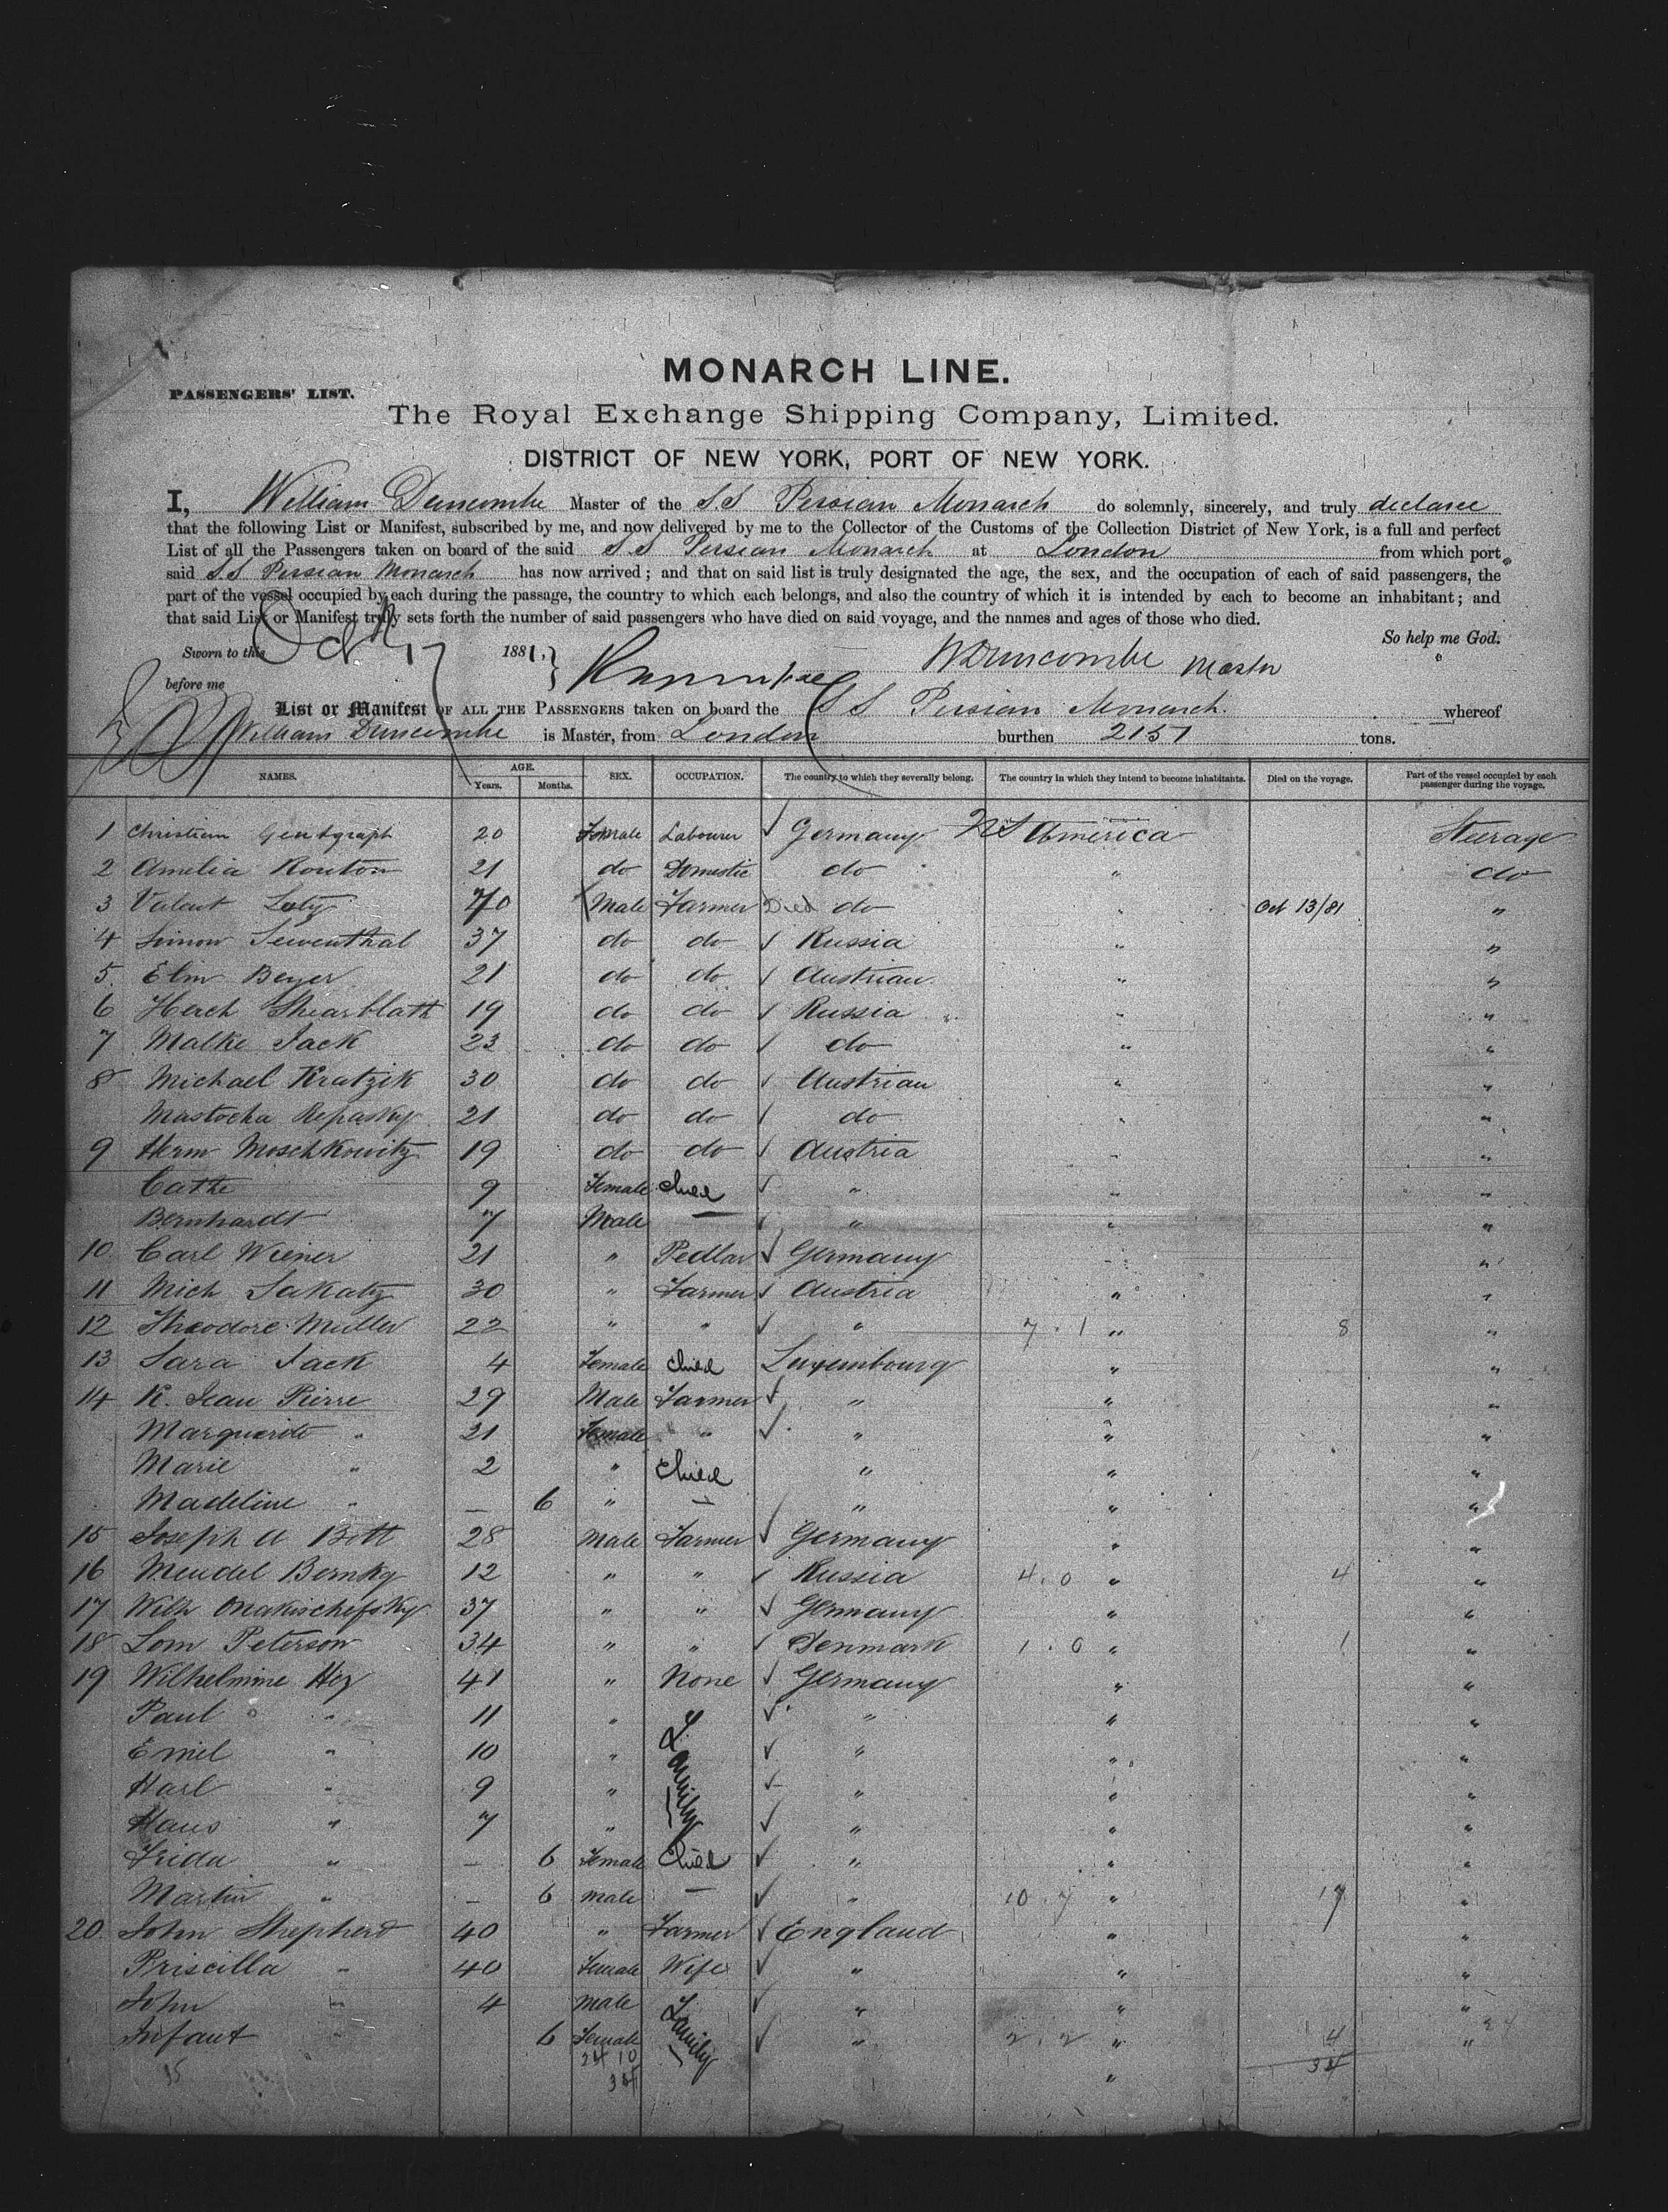 MONARCH LINE.
PASSENGERS' LIST.
The Royal Exchange Shipping Company, Limited.
DISTRICT OF NEW YORK, PORT OF NEW YORK.
I, William Duncombe Master of the S.S Persian Monarch do solemnly, sincerely, and truly declare
that the following List or Manifest, subscribed by me, and now delivered by me to the Collector of the Customs of the Collection District of New York, is a full and perfect
List of all the Passengers taken on board of the said S S Persian Monarch at London from which port
said S.S Persian Monarch has now arrived; and that on said list is truly designated the age, the sex, and the occupation of each of said passengers, the
part of the vessel occupied by each during the passage, the country to which each belongs, and also the country of which it is intended by each to become an inhabitant; and
that said List or Manifest truly sets forth the number of said passengers who have died on said voyage, and the names and ages of those who died.
So help me God.
Sworn to this Oct 17 1881, WDuncombe Master
before me
List or Manifest OF ALL THE PASSENGERS taken on board the S S Persian Monarch. whereof
William Duncombe is Master, from London burthen 2157 tons.
NAMES. AGE. Years. Months. SEX. OCCUPATION. The country to which they severally belong. The country in which they intend to become inhabitants. Died on the voyage. Part of the vessel occupied by each passenger during the voyage.
1 Christian 20 Labourer Germany America Steerage
2 Amelia Routon 21 do Domestic do " do
3 70 Male Farmer Died do " Oct 13/81 "
4 Simon 37 do do Russia " "
5 Beyer 21 do do Austrian " "
6 19 do do Russia " "
7 Malke Jack 23 do do do " "
8 Michael Kratzik 30 do do Austrian " "
Repasky 21 do do do " "
9 Herm Moschkowitz 19 do do Austria " "
Cathe 9 Female child " " "
Bernhardt 7 Male — " " "
10 Carl Wiener 21 " Pedlar Germany " "
11 Mich Sakatz 30 " Farmer Austria " "
12 Theodore Muller 22 " " " 7.1 " 8 "
13 Sara Jack 4 Female child Luxembourg " "
14 K. Jean Pierre 29 Male Farmer " " "
Marguerite " 21 Female " " " "
Marie " 2 " child " " "
Madeline " — 6 " — " " "
15 Joseph A Bott 28 Male Farmer Germany " "
16 Mendel 12 " " Russia 4.0 " 4 "
17 Wilh 37 " " Germany " "
18 Peterson 34 " " Denmark 1.0 " 1 "
19 Wilhelmine 41 " None Germany " "
Paul " 11 " Family " " "
Emil " 10 " " " "
Karl " 9 " " " "
Hans " 7 " " " "
Frida " — 6 Female Child " " "
Martin " — 6 male — " 10 7 " 17 "
20 John Shepherd 40 " Farmer England " "
Priscilla " 40 Female Wife " " "
John " 4 Male Family " " "
Infant " 6 Female " 2.2 " 4 "
24 10
34 " 34